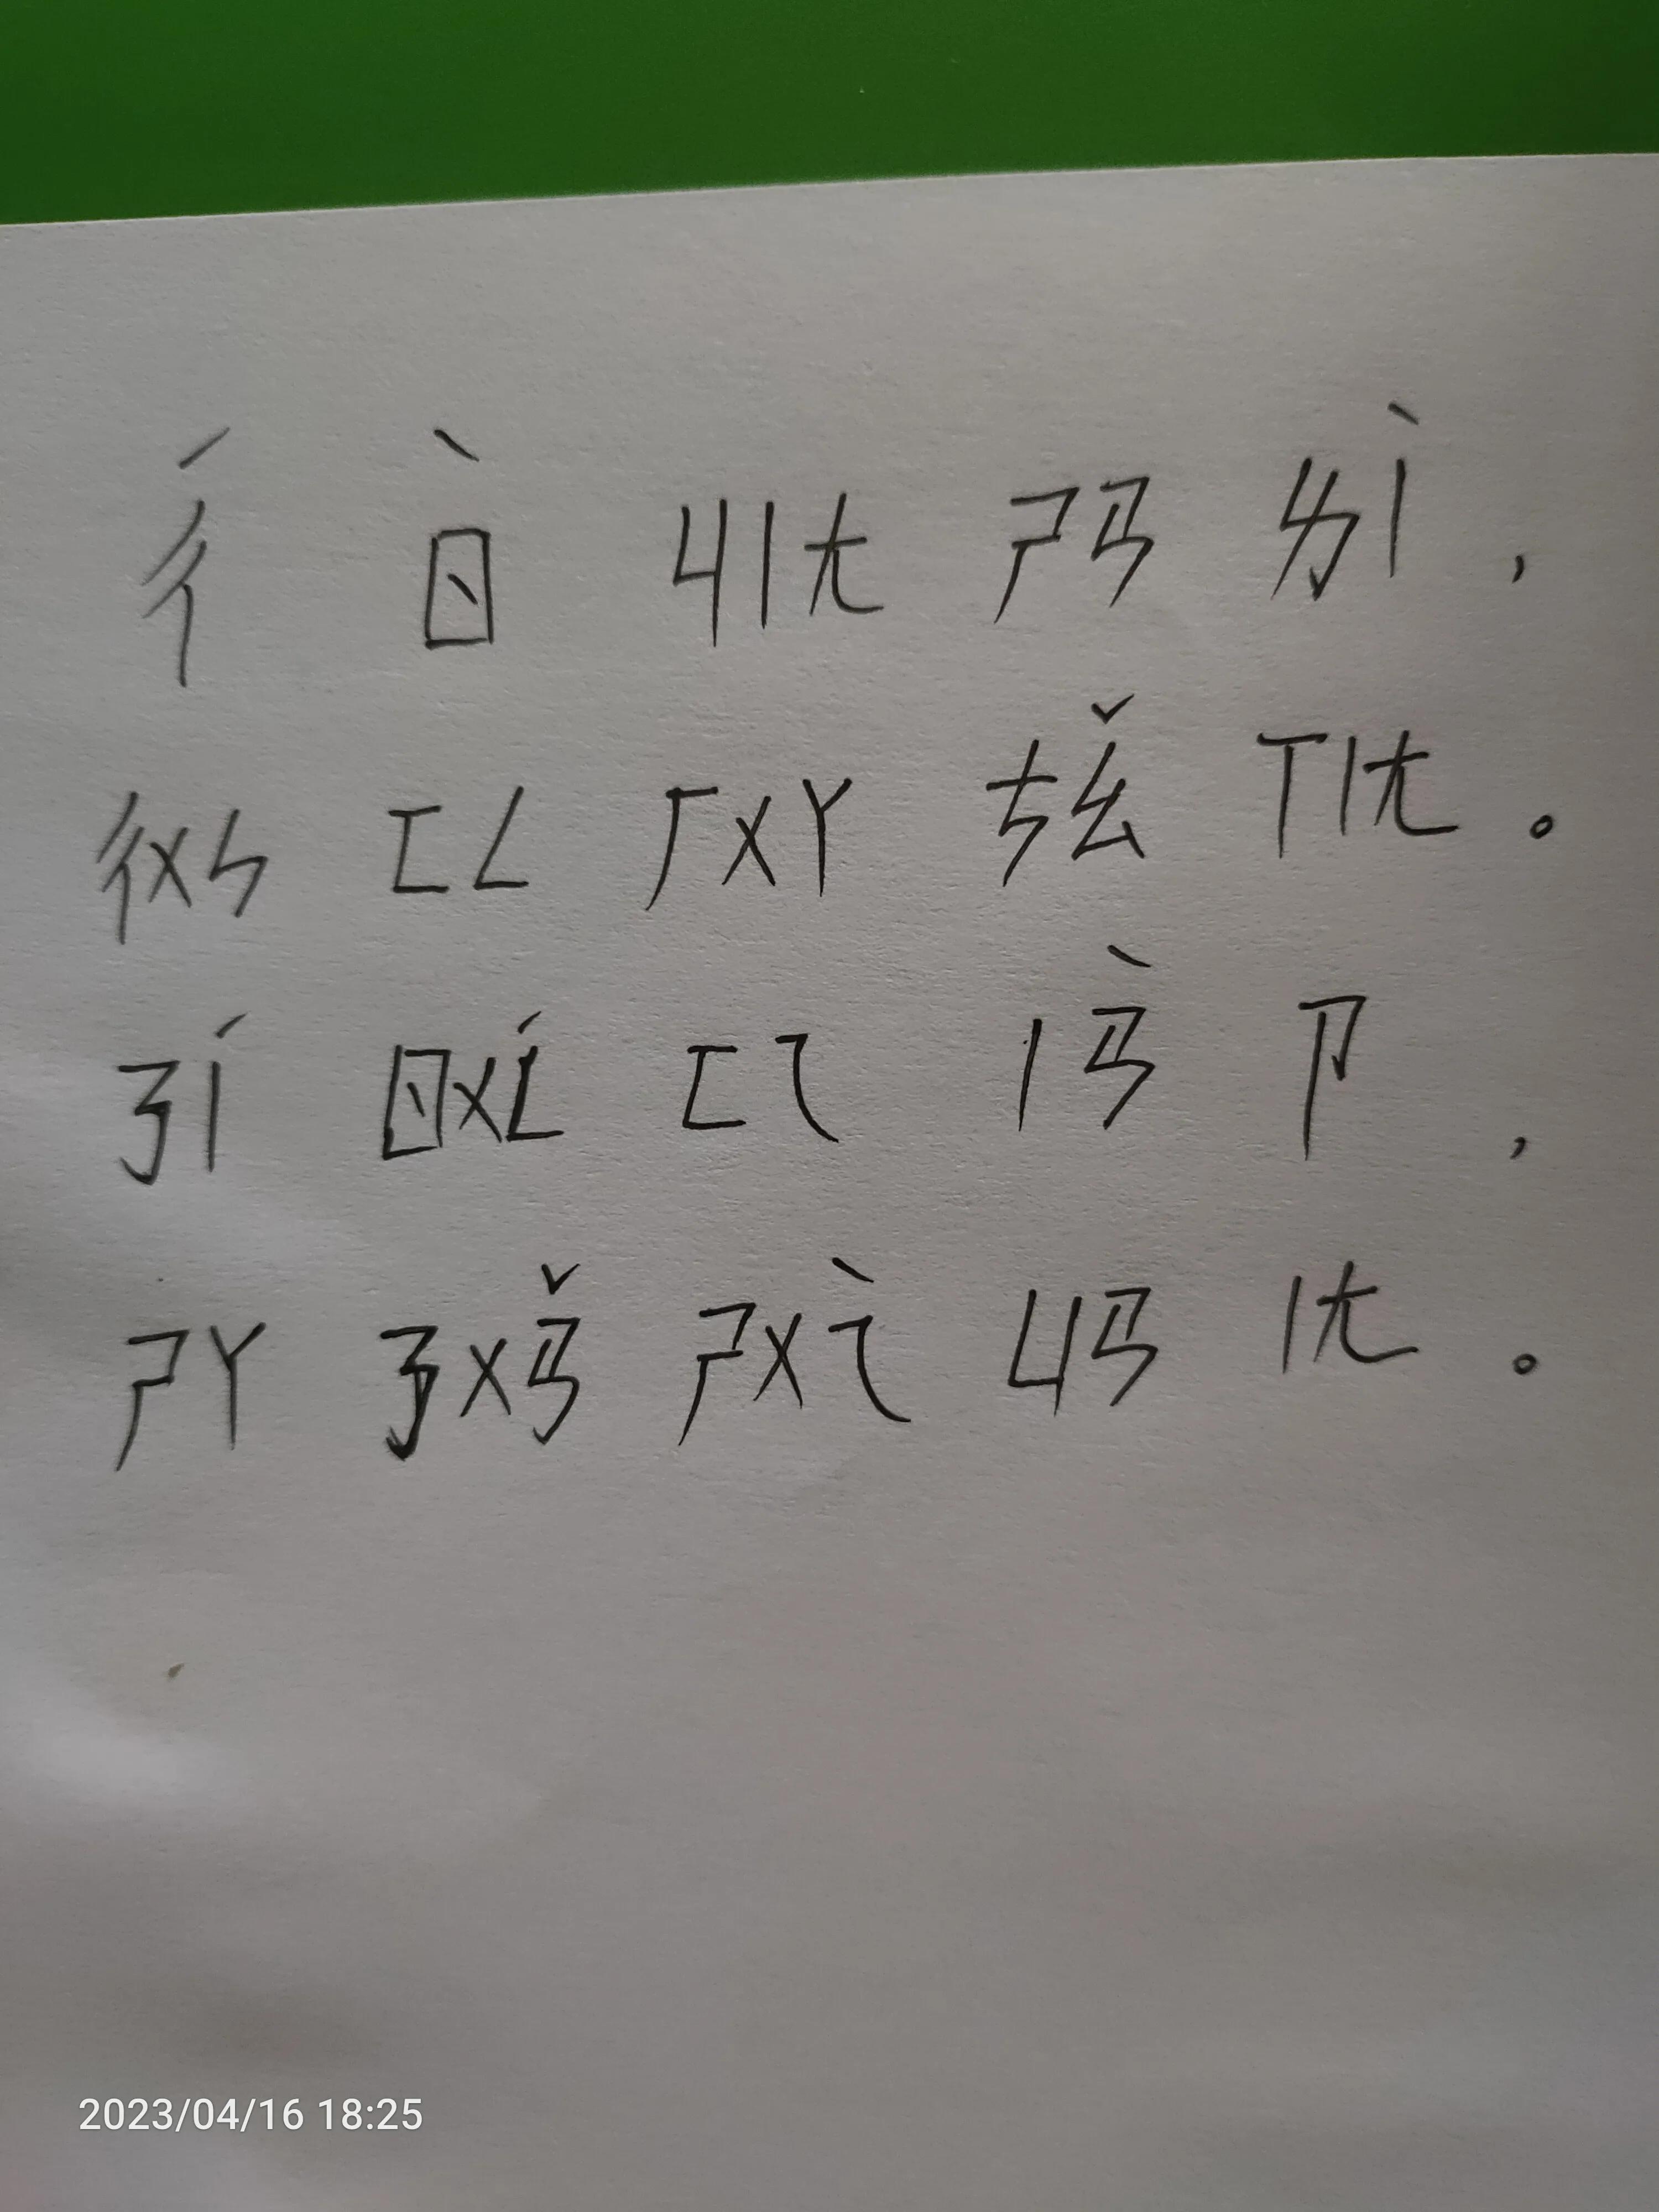 ㄔˊ ㄖˋ ㄐㄧㄤ ㄕㄢ ㄌㄧˋ，
ㄔㄨㄣ ㄈㄥ ㄏㄨㄚ ㄘㄠˇ ㄒㄧㄤ。
ㄋㄧˊ ㄖㄨㄥˊ ㄈㄟ ㄧㄢˋ ㄗ，
ㄕㄚ ㄋㄨㄢˇ ㄕㄨㄟˋ ㄩㄢ ㄧㄤ。
2023/04/16 18:25